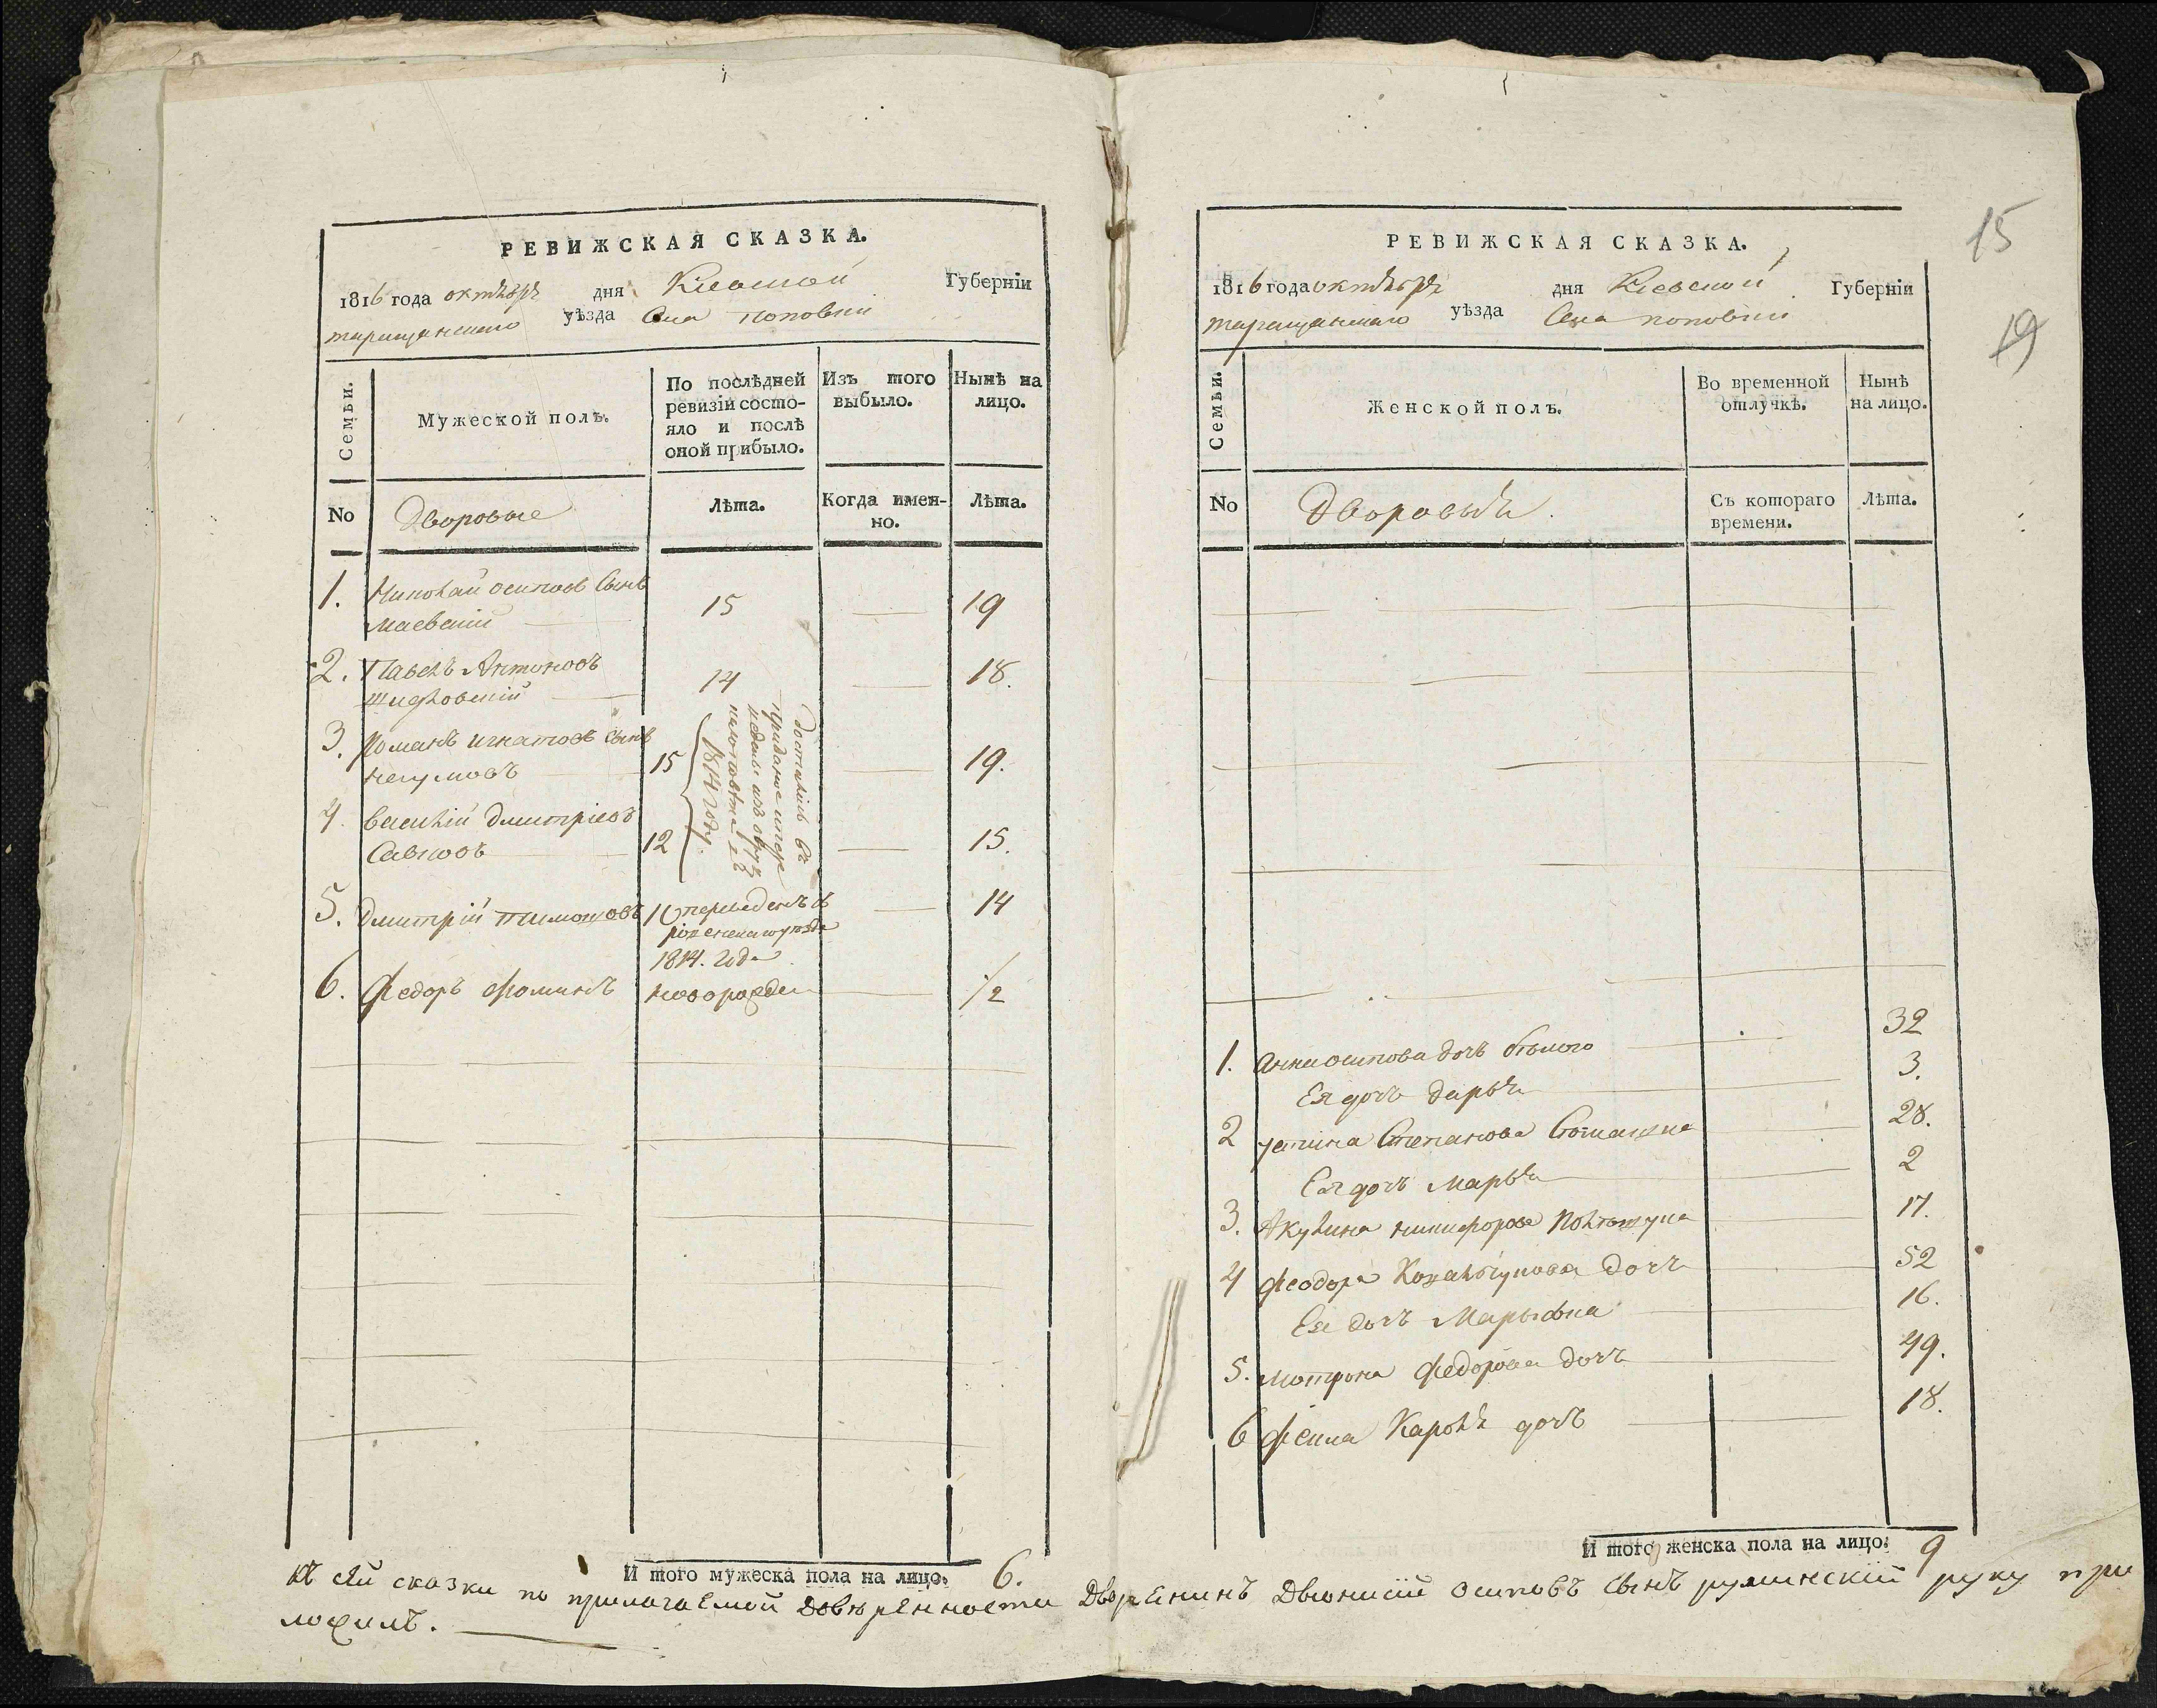 РЕВИЖСКАЯ СКАЗКА.
1816 года октября дня Киевской Губерніи
таращанского уѣзда Села Поповки
Семьи.
Мужеской полъ.
По послѣдней ревизіи состо-
яло и послѣ
оной прибыло.
Изъ того выбыло.
Нынѣ на лицо.
No
Дворовые
Лѣта.
Когда имен-
но.
Лѣта.
1. Николай осиповъ Сынъ
Маевскій
15
19
2. Павелъ Антоновъ
14
18.
3. Романъ игнатовъ сынъ
15
19.
4. василій дмитріевъ
Савковъ
12
15.
1814 году.
5. дмитрій тимошовъ
10 переведенъ
1814. года
14
6. Федоръ Фоминъ
новорожден
1/2
И того мужеска пола на лицо. 6.
15
19
РЕВИЖСКАЯ СКАЗКА.
1816 года октября дня Киевской Губерніи
таращанского уѣзда Села поповки
Семьи.
Женской полъ.
Во временной
отлучкѣ.
Нынѣ
на лицо.
No
Дворовыя.
Съ котораго
времени.
Лѣта.
1. Анна осипова дочь
32
Ея дочь Дарья
3.
2 устина Степанова
28.
Ея дочь Марья
2
3. Акулина никифорова
17.
4 Феодора дочь
52
Ея дочь Марьяна
16.
5. мотрона Федорова дочь
49.
6 Фекла Кароля дочь
18.
И того женска пола на лицо. 9
К сей сказки по прилагаемой довѣренности Дворенинъ Двионисій Осиповъ Сынъ руку при
ложилъ.